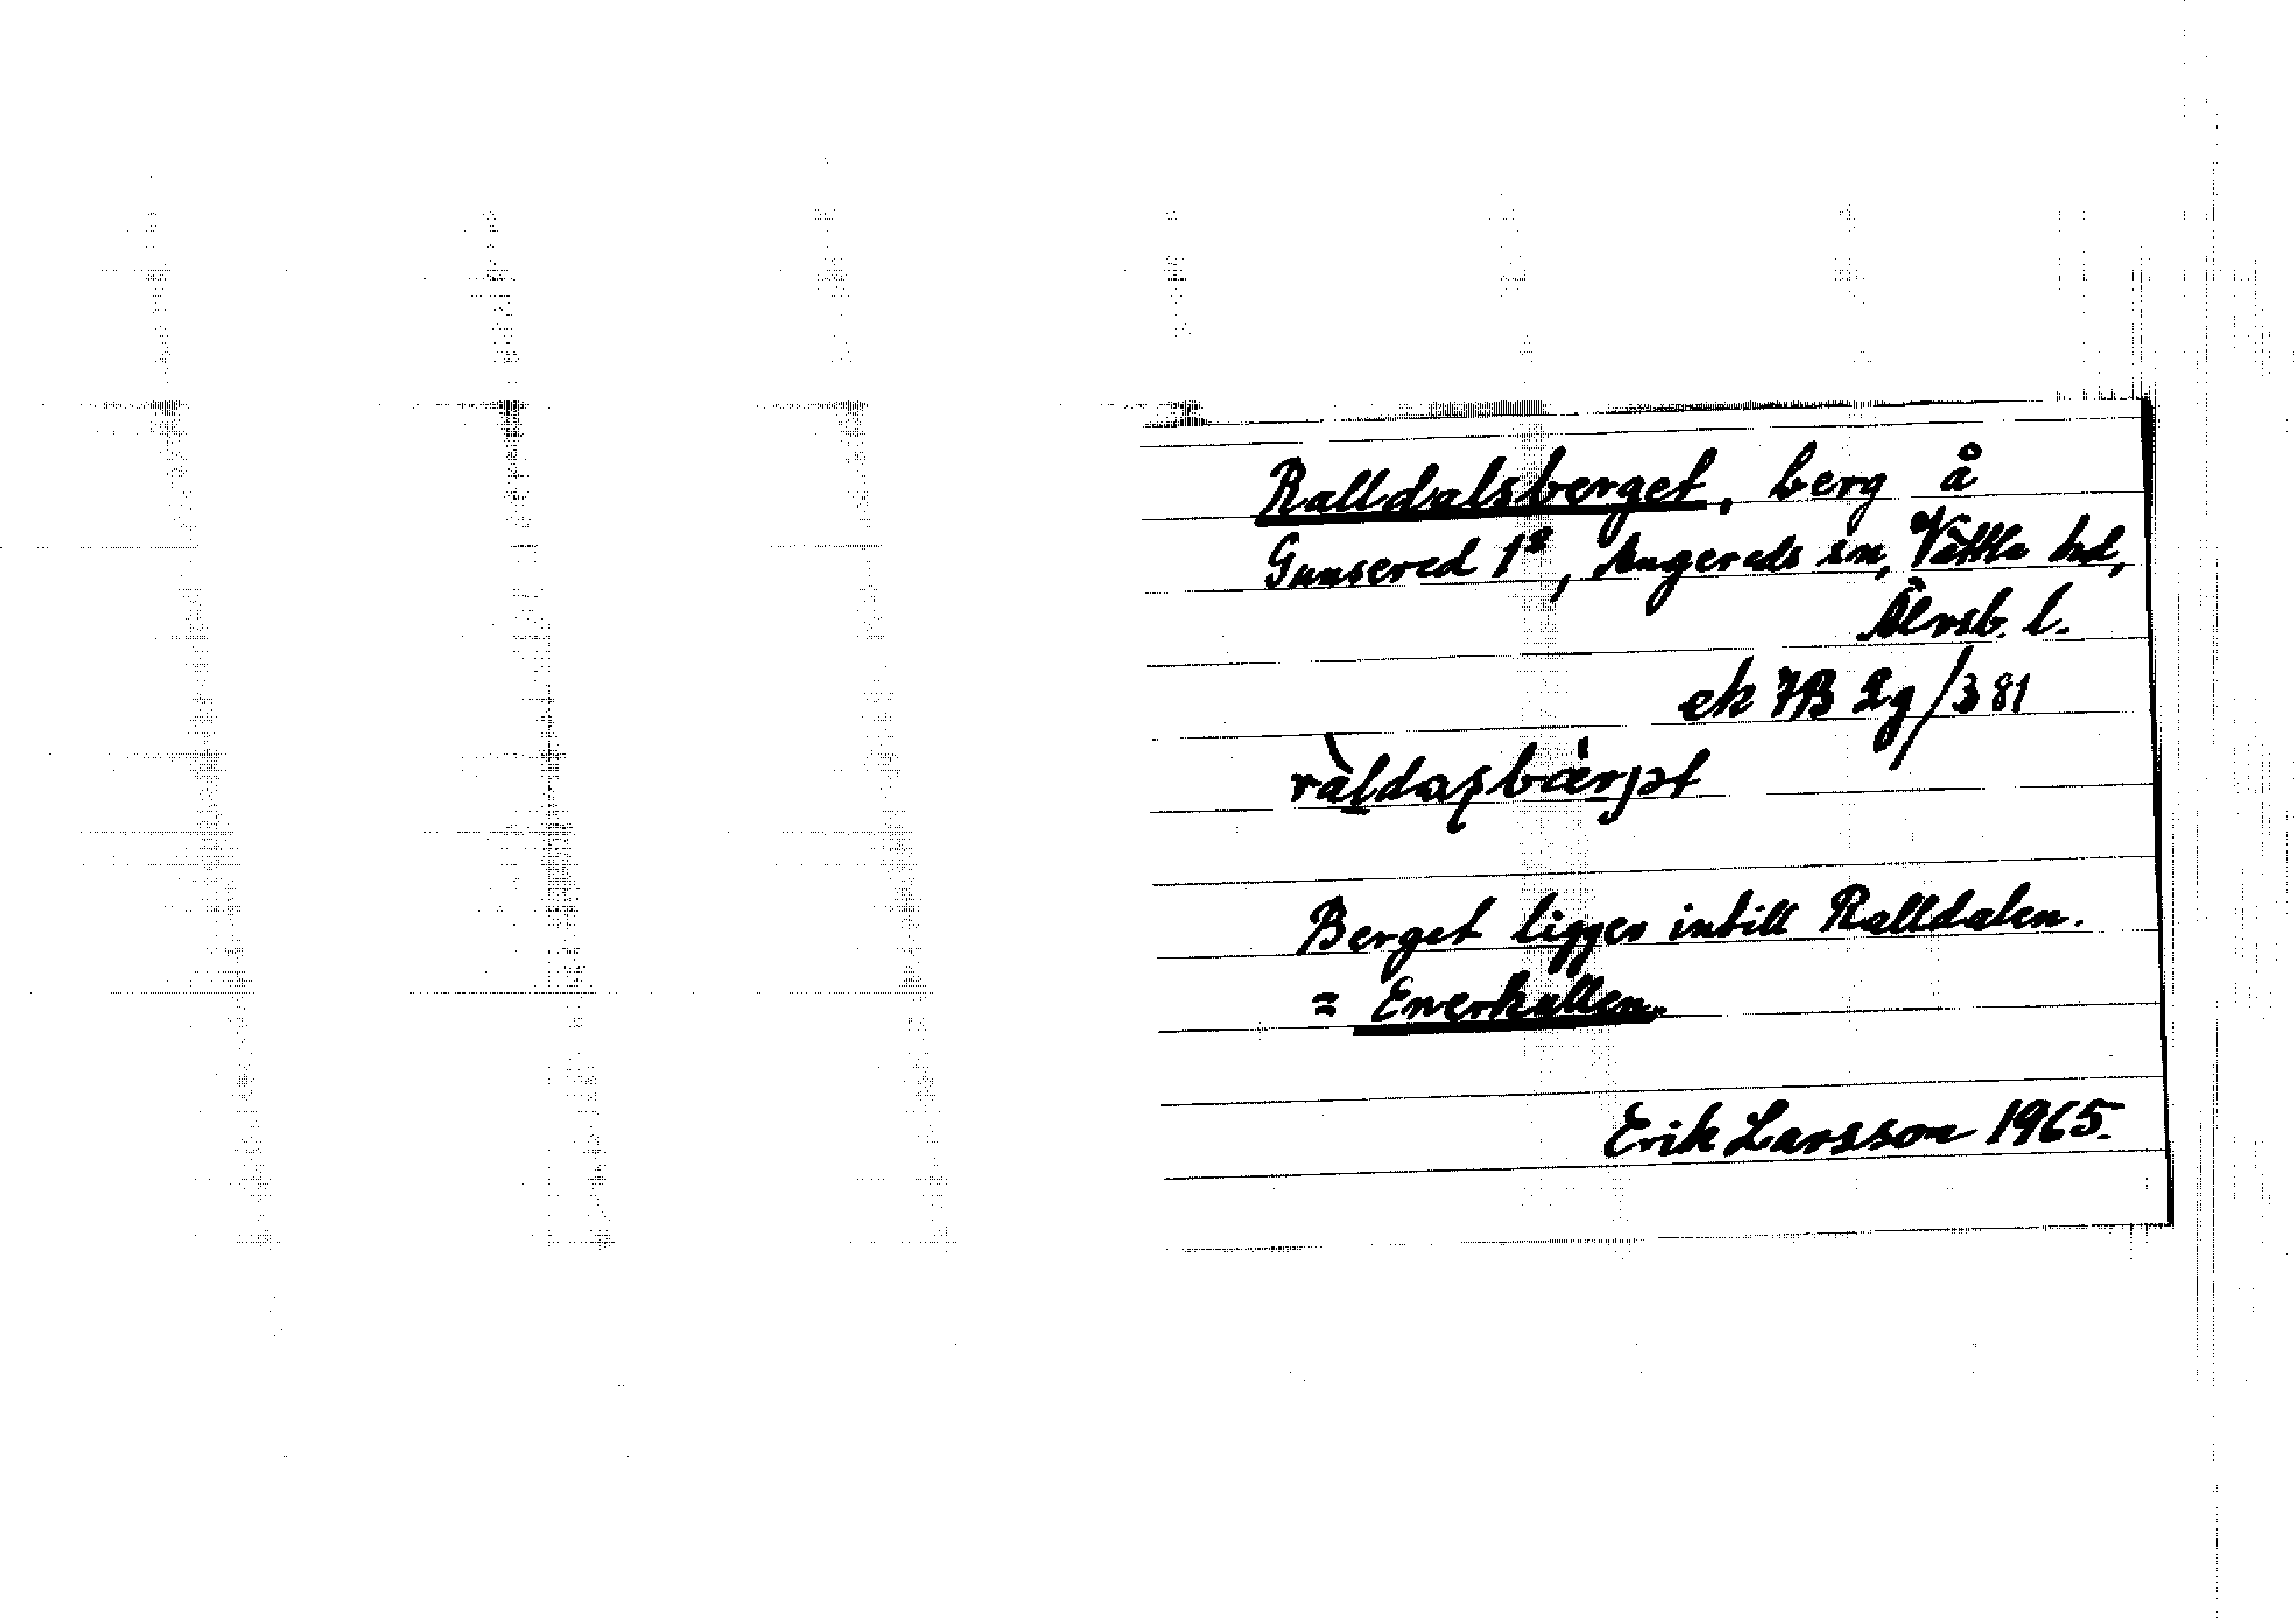 Ralldalsberget, berg å
Gunsered 1², Angereds sn, Vättle hd,
Älvsb. l.
ek 7B 2g/381
Berget ligger intill Ralldalen.
= Enerkullen.
Erik Larsson 1965.